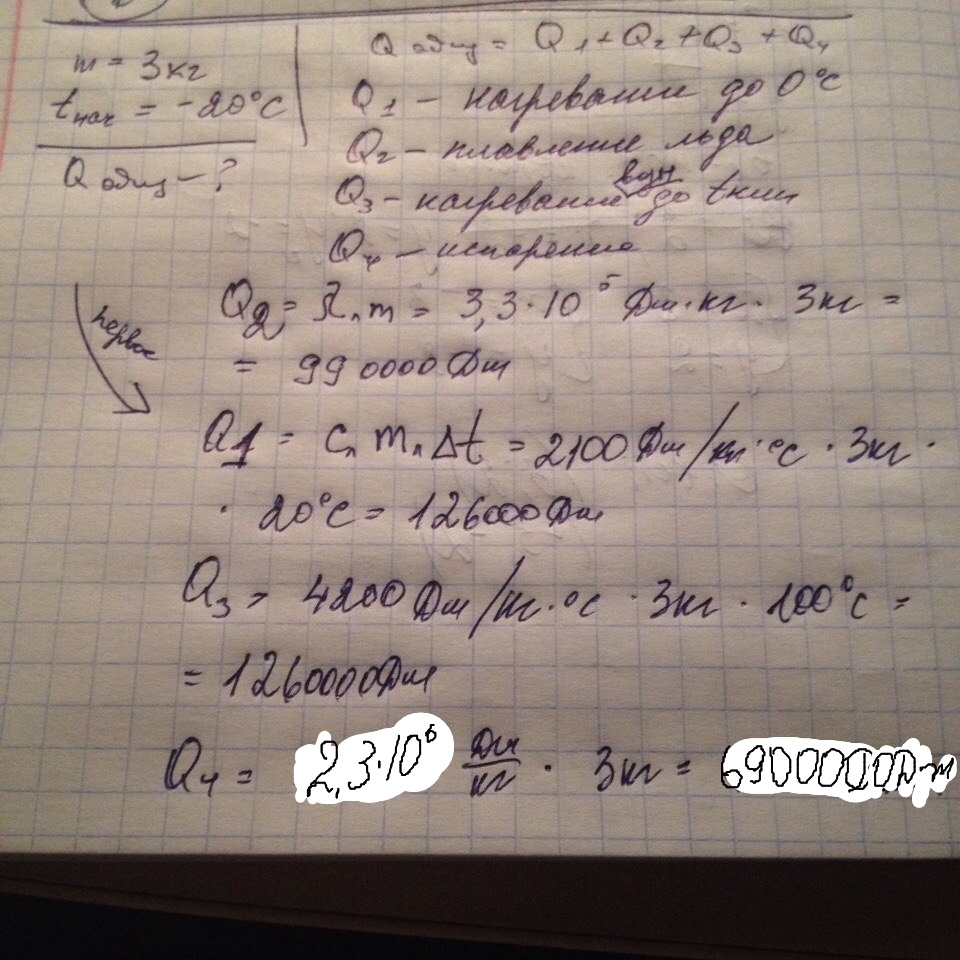 m = 3кг
tнач = -20°C
Qобщ - ?
Qобщ = Q1 + Q2 + Q3 + Q4
Q1 - нагревание до 0°C
Q2 - плавление льда
Q3 - нагревание до tкип
Q4 - испарение
первое
Q2 = λл m = 3,3·10⁵ Дж·кг · 3кг =
= 990000 Дж
Q1 = Cл mл Δt = 2100 Дж/кг·°C · 3кг ·
· 20°C = 126000 Дж
Q3 = 4200 Дж/кг·°C · 3кг · 100°C =
= 1260000 Дж
Q4 = 2,3·10⁶ Дж/кг · 3кг = 6900000Дж